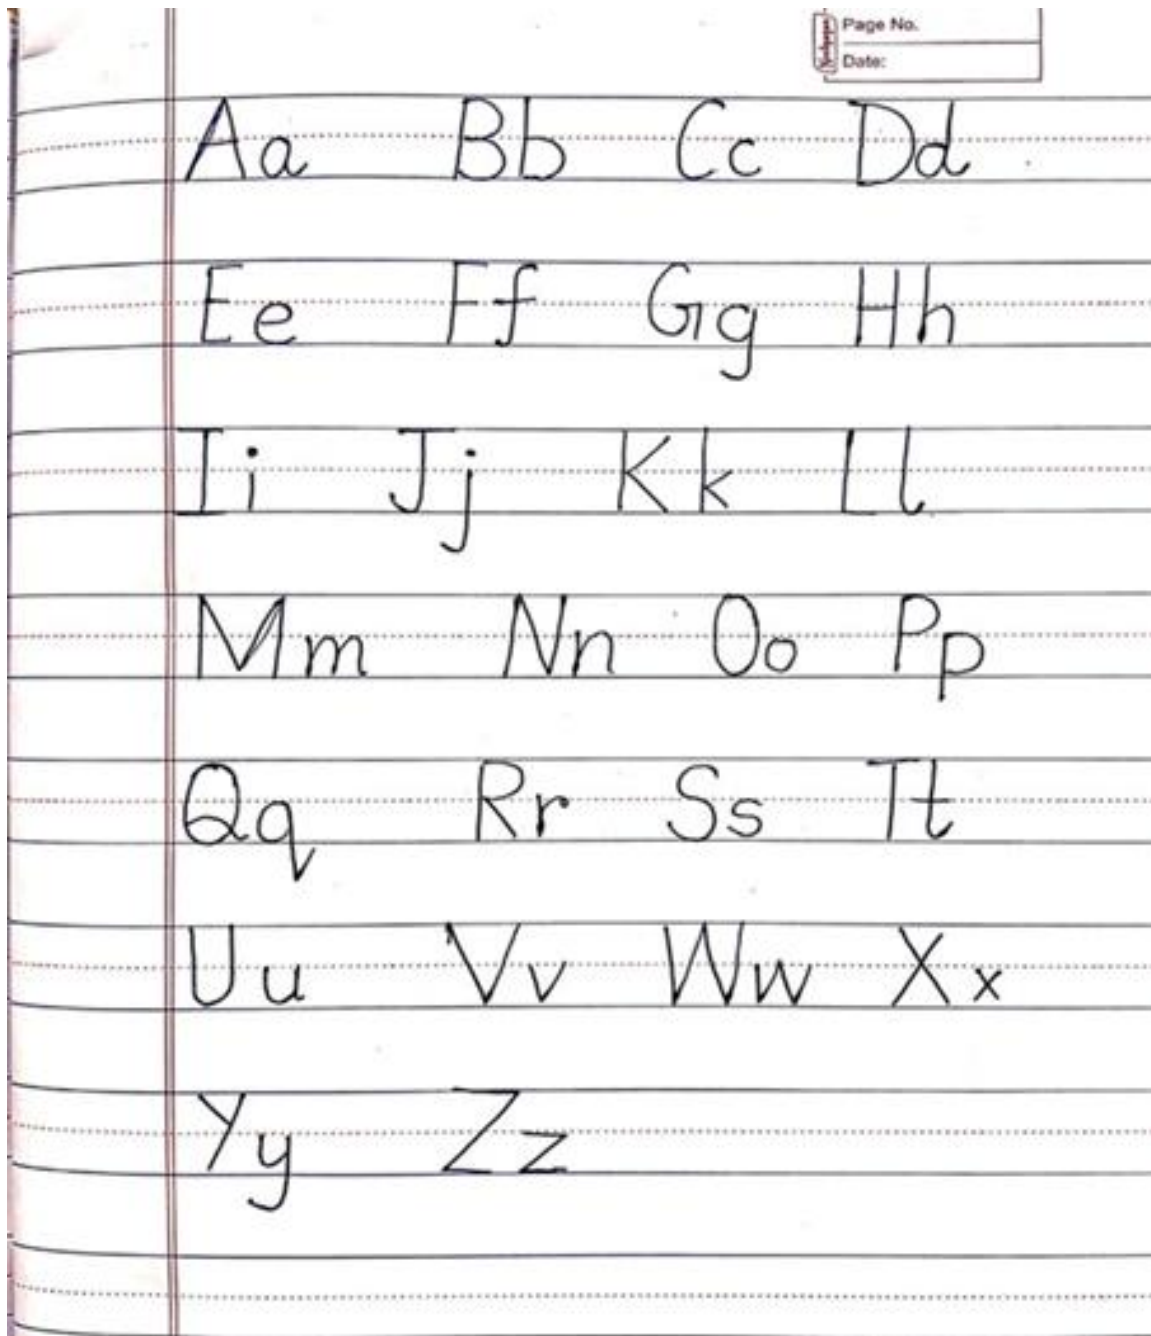 Page No.
Date:
Aa Bb Cc Dd
Ee Ff Gg Hh
Ii Jj Kk Ll
Mm Nn Oo Pp
Qq Rr Ss Tt
Uu Vv Ww Xx
Yy Zz